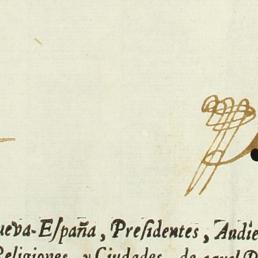 ueva-España, Presidentes, Audie
Religiones, y Ciudades, de aquel